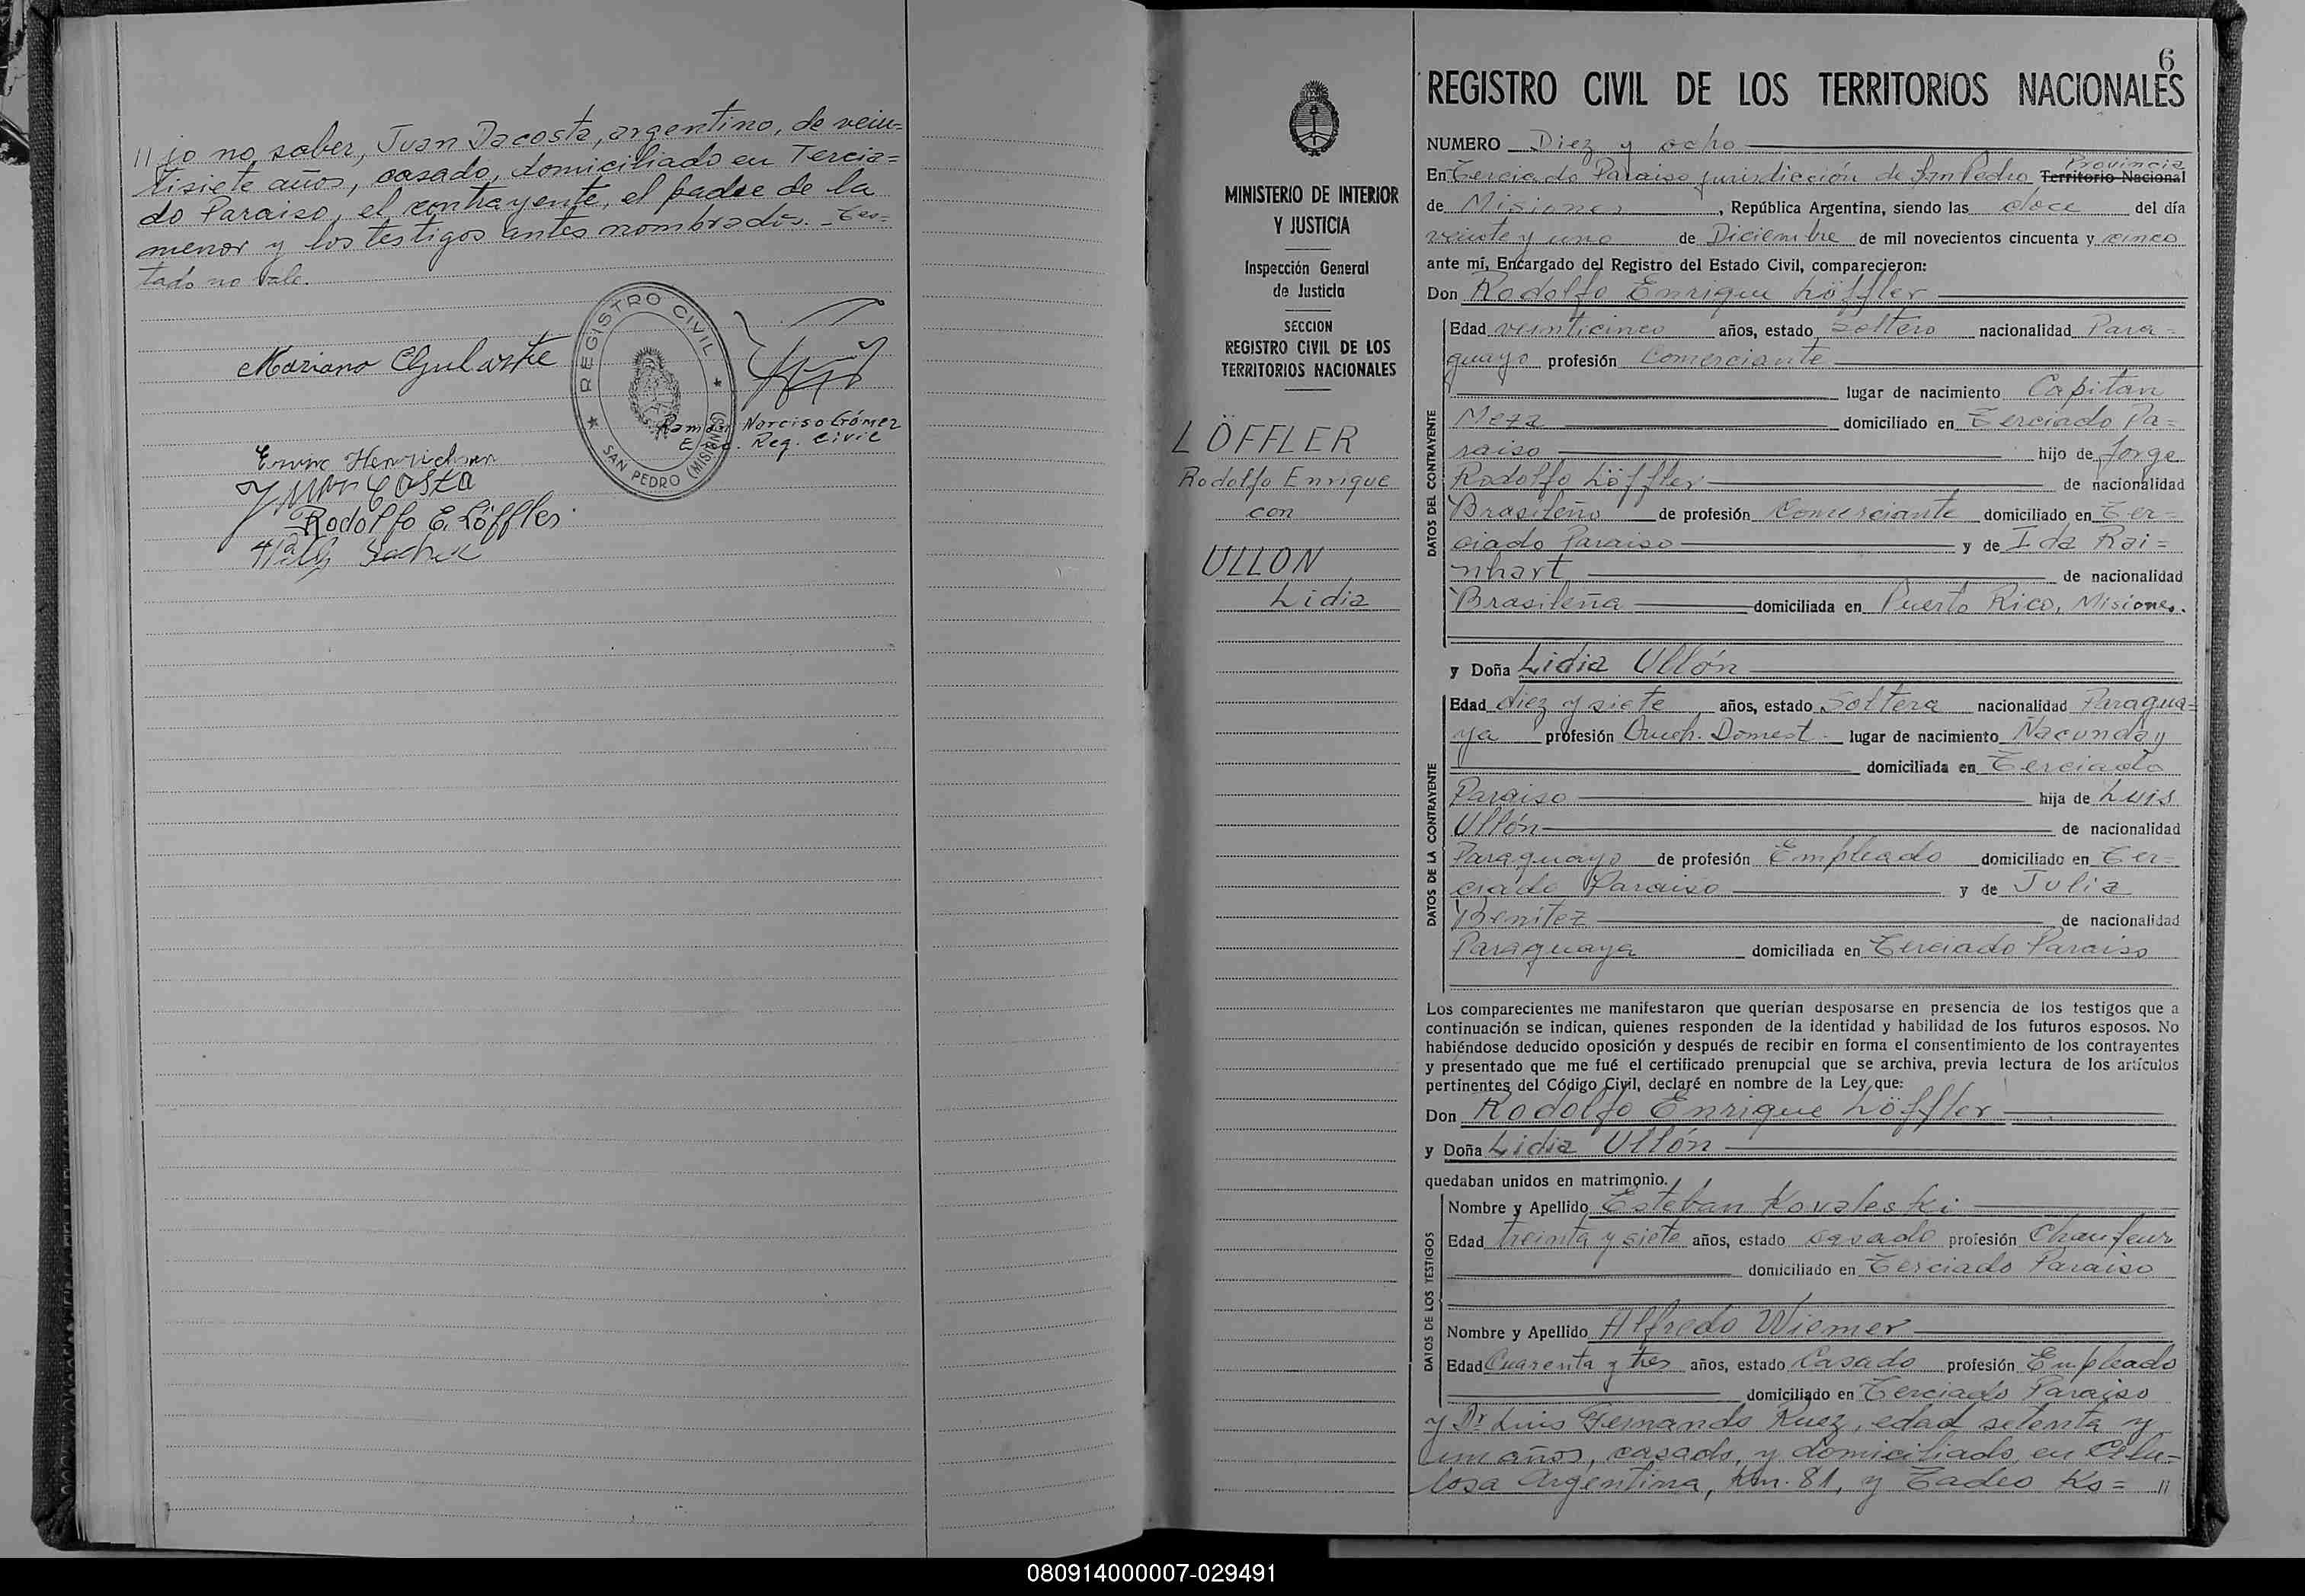 // jo no saber, Juan Dacosta, argentino, de vein=
tisiete años, casado, domiciliado en Tercia=
do Paraiso, el contrayente, el padre de la
menor y los testigos antes nombrados. - Tes=
tado no vale.
REGISTRO CIVIL
SAN PEDRO (MISIONES)
Mariano
Narciso Gómez
Reg. Civil
Costa
Rodolfo E. Löffler
6
MINISTERIO DE INTERIOR
Y JUSTICIA
Inspección General
de Justicia
SECCION
REGISTRO CIVIL DE LOS
TERRITORIOS NACIONALES
LÖFFLER
Rodolfo Enrique
con
ULLON
Lidia
REGISTRO CIVIL DE LOS TERRITORIOS NACIONALES
NUMERO Diez y ocho
Provincia
En Terciado Paraiso jurisdicción de San Pedro Territorio Nacional
de Misiones, República Argentina, siendo las doce del día
veinte y uno de Diciembre de mil novecientos cincuenta y cinco
ante mí, Encargado del Registro del Estado Civil, comparecieron:
Don Rodolfo Enrique Löffler
DATOS DEL CONTRAYENTE
Edad veinticinco años, estado soltero nacionalidad Para=
guayo profesión Comerciante
lugar de nacimiento Capitan
Meza domiciliado en Terciado Pa=
raiso hijo de Jorge
Rodolfo Löffler de nacionalidad
Brasileño de profesión Comerciante domiciliado en Ter=
ciado Paraiso y de Ida Rai=
nhart de nacionalidad
Brasileña domiciliada en Puerto Rico, Misiones.
y Doña Lidia Ullón
DATOS DE LA CONTRAYENTE
Edad diez y siete años, estado Soltera nacionalidad Paragua=
ya profesión Queh. Domest. lugar de nacimiento Ñacunday
domiciliada en Terciado
Paraiso hija de Luis
Ullón de nacionalidad
Paraguayo de profesión Empleado domiciliado en Ter=
ciado Paraiso y de Julia
Benitez de nacionalidad
Paraguaya domiciliada en Terciado Paraiso
Los comparecientes me manifestaron que querían desposarse en presencia de los testigos que a
continuación se indican, quienes responden de la identidad y habilidad de los futuros esposos. No
habiéndose deducido oposición y después de recibir en forma el consentimiento de los contrayentes
y presentado que me fué el certificado prenupcial que se archiva, previa lectura de los artículos
pertinentes del Código Civil, declaré en nombre de la Ley que:
Don Rodolfo Enrique Löffler
y Doña Lidia Ullón
quedaban unidos en matrimonio.
DATOS DE LOS TESTIGOS
Nombre y Apellido Esteban Kovaleski
Edad treinta y siete años, estado casado profesión Chaufeur
domiciliado en Terciado Paraiso
Nombre y Apellido Alfredo Wiemer
Edad Cuarenta y tres años, estado Casado profesión Empleado
domiciliado en Terciado Paraiso
y Dr Luis Fernando Ruez, edad setenta y
un años, casado, y domiciliado en Celu=
losa Argentina, Km. 81, y Tadeo Ko= //
080914000007-029491